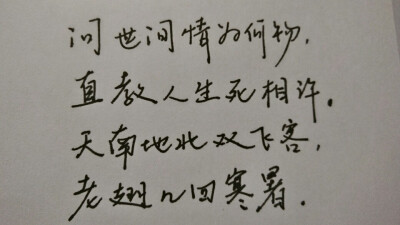 问世间情为何物,
直教人生死相许.
天南地北双飞客,
老翅几回寒暑.